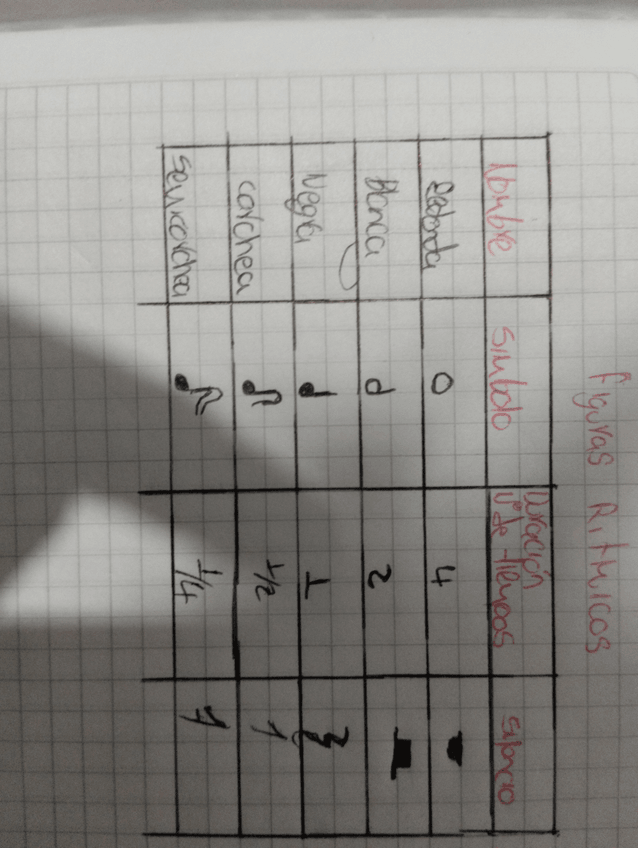 Figuras Ritmicos
Nombre Simbolo Duración Nº de tiempos Silencio
Redonda 4
Blanca 2
Negra 1
Corchea 1/2
Semicorchea 1/4